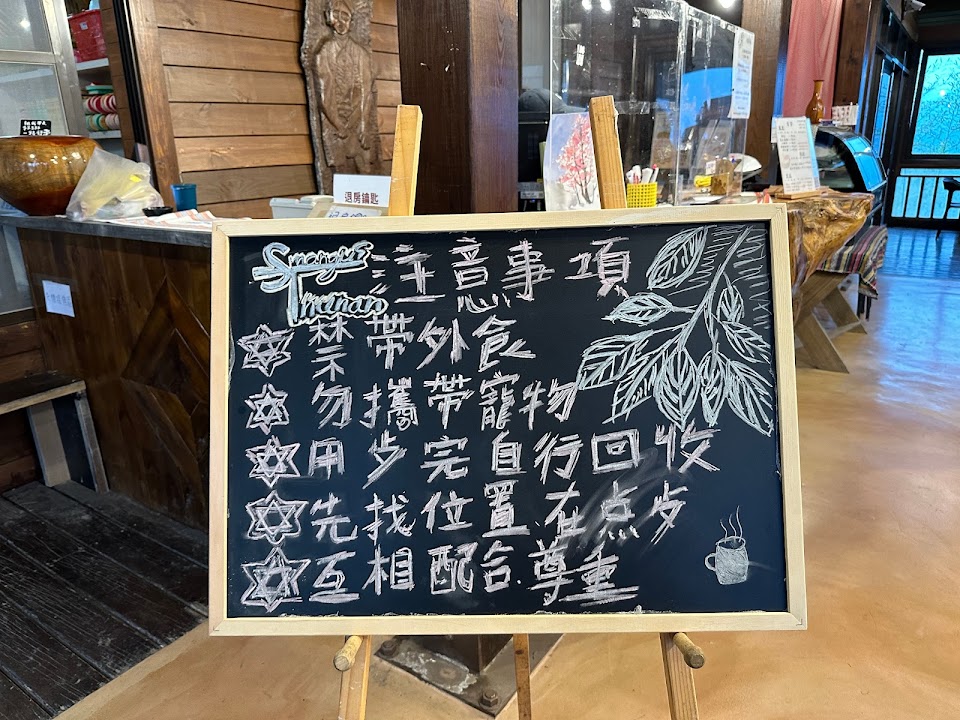 Smangus 注意事項
Tmunan
禁帶外食
勿攜帶寵物
用步完自行回收
先找位置在点步
互相配合尊重
退房鑰匙